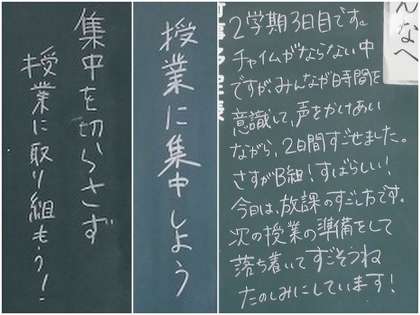 集中を切らさず
授業に取り組もう!
授業に集中しよう
んなへ
2学期3日目です。
チャイムがならない中
ですが、みんなが時間を
意識して、声をかけあい
ながら、2日間すごせました。
さすがB組!すばらしい!
今日は、放課のすごし方です。
次の授業の準備をして
落ち着いてすごそうね
たのしみにしています!